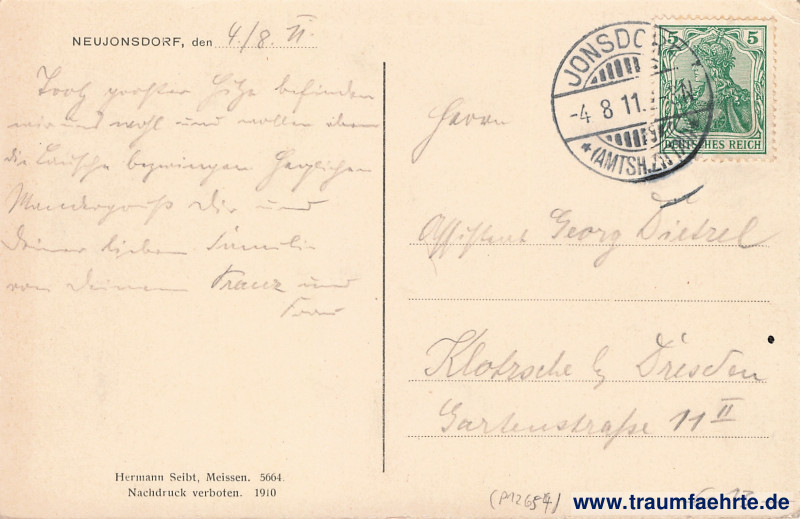 NEUJONSDORF, den 4/8. 11.
Trotz großer Hitze befinden
wir uns wohl und wollen eben
die Lausche bezwingen Herzlichen
Wandergruß Dir und
Deiner lieben Familie
von Deinem Franz und
Frau
Hermann Seibt, Meissen. 5664.
Nachdruck verboten. 1910
JONSDORF
-4 8 11.
(AMTSH.
5 5
DEUTSCHES REICH
Herrn
Assistent Georg Dietzel
Klotzsche b/ Dresden
Gartenstraße 11 II
(P12654)
www.traumfaehrte.de